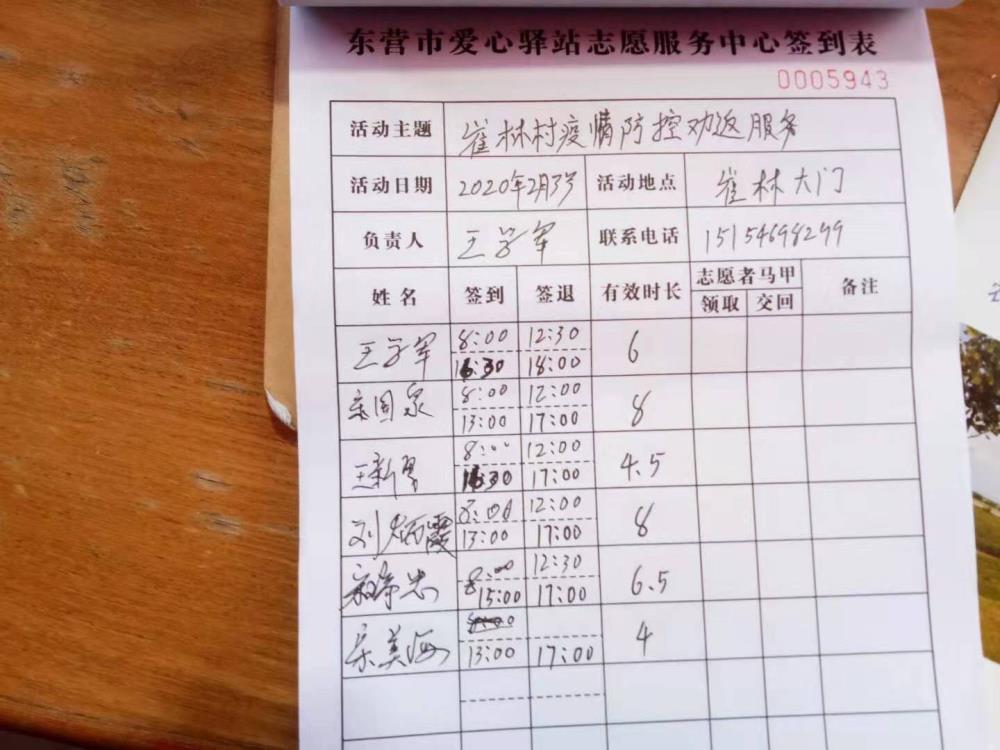 东营市爱心驿站志愿服务中心签到表
0005943
活动主题 崔林村疫情防控劝返服务
活动日期 2020年2月3号 活动地点 崔林大门
负责人 王学军 联系电话 15154698299
姓名 签到 签退 有效时长 志愿者马甲 备注
领取 交回
王学军 8:00 12:30 6
16:30 18:00
宋国泉 8:00 12:00 8
13:00 17:00
王新勇 8:00 12:00 4.5
16:30 17:00
刘炳霞 8:00 12:00 8
13:00 17:00
8:00 12:30 6.5
15:00 17:00
宋美海 4
13:00 17:00